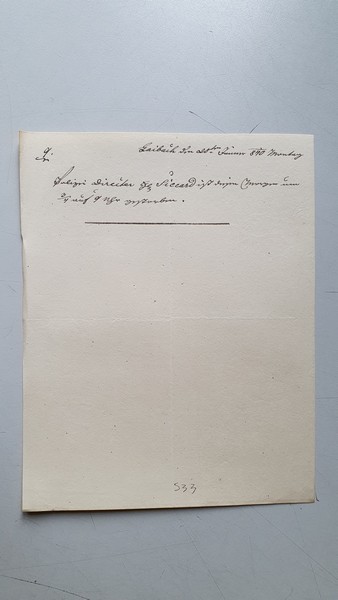 9.
Laibach den 20ten Jänner 840 Montag
Polizei Director v. Siccard ist diesen Morgen um
3/4 auf 9 Uhr gestorben.
533